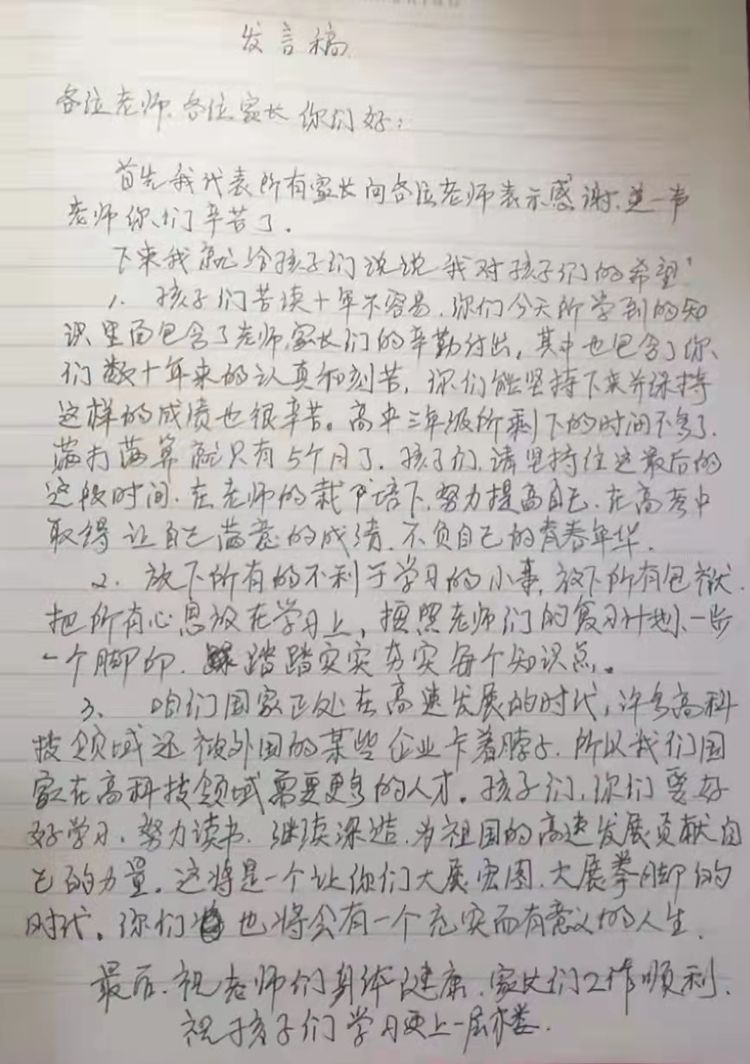 发言稿
各位老师、各位家长你们好：
首先我代表所有家长向各位老师表示感谢,道一声
老师你们辛苦了.
下来我就给孩子们说说我对孩子们的希望:
1、孩子们苦读十年不容易.你们今天所学到的知
识里面包含了老师.家长们的辛勤付出，其中也包含了你
们数十年来的认真和刻苦，你们能坚持下来并保持
这样的成绩也很辛苦。高中三年级所剩下的时间不多了.
满打满算就只有5个月了.孩子们,请坚持住这最后的
这段时间.在老师的栽培下.努力提高自己.在高考中
取得让自己满意的成绩.不负自己的青春年华.
2、放下所有的不利于学习的小事,放下所有包袱.
把所有心思放在学习上，按照老师们的复习计划、一步
一个脚印.踏踏实实夯实每个知识点。
3、咱们国家正处在高速发展的时代，许多高科
技领域还被外国的某些企业卡着脖子.所以我们国
家在高科技领域需要更多的人才。孩子们,你们要好
好学习.努力读书.继续深造.为祖国的高速发展贡献自
己的力量。这将是一个让你们大展宏图、大展拳脚的
时代。你们也将会有一个充实而有意义的人生.
最后.祝老师们身体健康.家长们工作顺利.
祝孩子们学习更上一层楼.